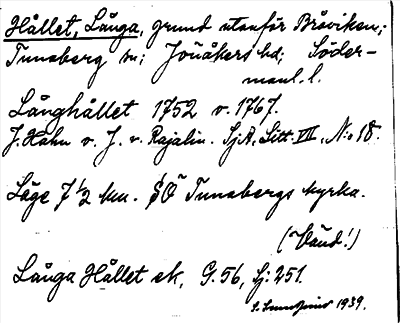 Hållet, Långa, grund utanför Bråviken;
Tunaberg sn; Jönåkers hd; Söder-
manl. l.
Långhållet 1752 o. 1767.
J. Hahn o. J. v. Rajalin. Sj.A. Litt. VII, No 18.
Läge 7 1/2 km. SO Tunabergs kyrka.
(Vänd!)
Långa Hållet ek, G. 56, Sj: 251.
1939.